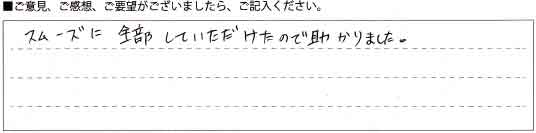 ■ご意見、ご感想、ご要望がございましたら、ご記入ください。
スムーズに 全部 していただけたので助かりました。